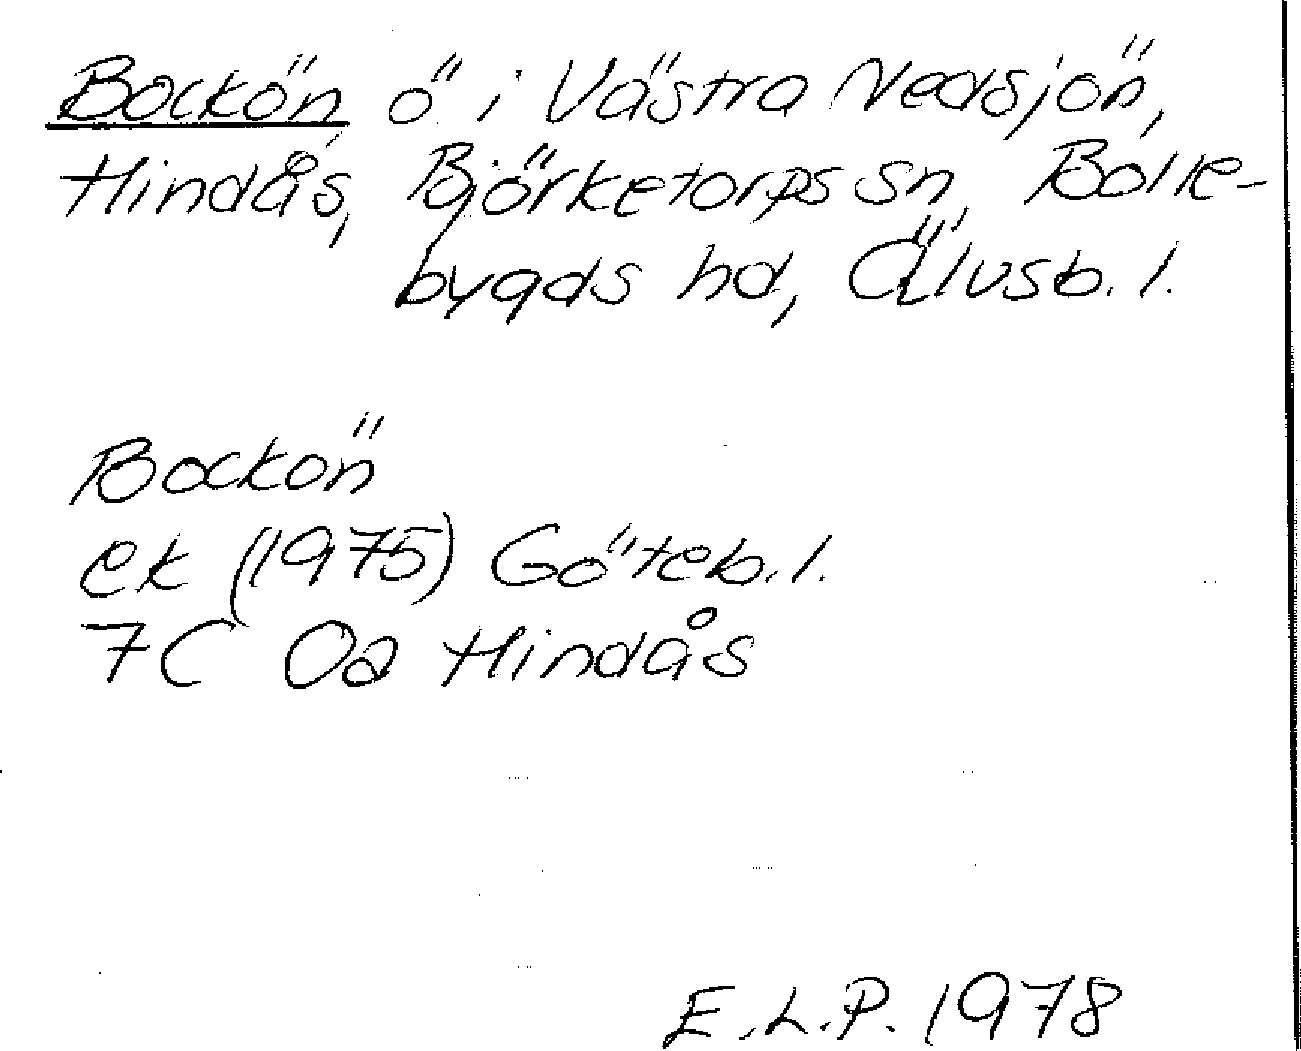 Bockön ö i Västra Nedsjön,
Hindås, Björketorps sn, Bolle-
bygds hd, Älvsb. l.
Bockön
ek (1975) Göteb. l.
7C 0a Hindås
E.L.P. 1978